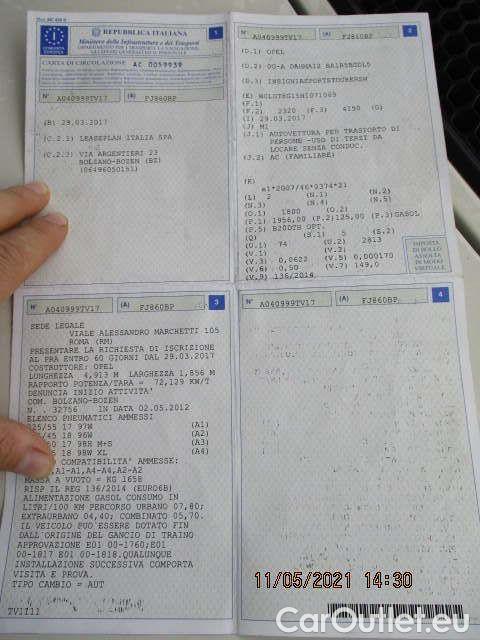 REPUBBLICA ITALIANA
Ministero delle Infrastrutture e dei Trasporti
1
CARTA DI CIRCOLAZIONE AC 0059939
N° A040999TV17 (A) FJ860BP
(B) 29.03.2017
(C.2.1) LEASEPLAN ITALIA SPA
(C.2.3) VIA ARGENTIERI 23
BOLZANO-BOZEN (BZ)
(06496050151)
N° A040999TV17 (A) FJ860BP
2
(D.1) OPEL
(D.3) INSIGNIASPORTSTOURERSW
(F.1)
(F.2) 2320 (F.3) 4150 (G)
(I) 29.03.2017
(J) M1
(J.1) AUTOVETTURA PER TRASPORTO DI
PERSONE -USO DI TERZI DA
LOCARE SENZA CONDUC.
(J.2) AC (FAMILIARE)
(K)
e1*2007/46*0374*21
(L) 2 (N.1) (N.2)
(N.3) (N.4) (N.5)
(O.1) 1800 (O.2)
(P.1) 1956,00 (P.2)125,00 (P.3)GASOL
(P.5) B20DTH OPT.
(Q) (S.1) 5 (S.2)
(U.1) 74 (U.2) 2813
(V.1) (V.2)
(V.3) 0,0622 (V.5) 0,000170
(V.6) 0,50 (V.7) 149,0
(V.9) 136/2014
IMPOSTA
DI BOLLO
ASSOLTA
IN MODO
VIRTUALE
N° A040999TV17 (A) FJ860BP
3
SEDE LEGALE
VIALE ALESSANDRO MARCHETTI 105
ROMA (RM)
PRESENTARE LA RICHIESTA DI ISCRIZIONE
AL PRA ENTRO 60 GIORNI DAL 29.03.2017
COSTRUTTORE: OPEL
LUNGHEZZA 4,913 M LARGHEZZA 1,856 M
RAPPORTO POTENZA/TARA = 72,129 KW/T
DENUNCIA INIZIO ATTIVITA'
COM. BOLZANO-BOZEN
N. . 32756 IN DATA 02.05.2012
ELENCO PNEUMATICI AMMESSI
/55 17 97W (A1)
/45 18 96W (A2)
17 98R M+S (A3)
18 98W XL (A4)
COMPATIBILITA' AMMESSE:
A1-A1,A4-A4,A2-A2
MASSA A VUOTO = KG 1658
RISP IL REG 136/2014 (EURO6B)
ALIMENTAZIONE GASOL CONSUMO IN
LITRI/100 KM PERCORSO URBANO 07,80;
EXTRAURBANO 04,40; COMBINATO 05,70.
IL VEICOLO PUO'ESSERE DOTATO FIN
DALL'ORIGINE DEL GANCIO DI TRAINO
APPROVAZIONE E01 00-1760;E01
00-1817 E01 00-1818.QUALUNQUE
INSTALLAZIONE SUCCESSIVA COMPORTA
VISITA E PROVA.
TIPO CAMBIO = AUT
TV1111
N° A040999TV17 (A) FJ860BP
4
11/05/2021 14:30
CarOutlet.eu